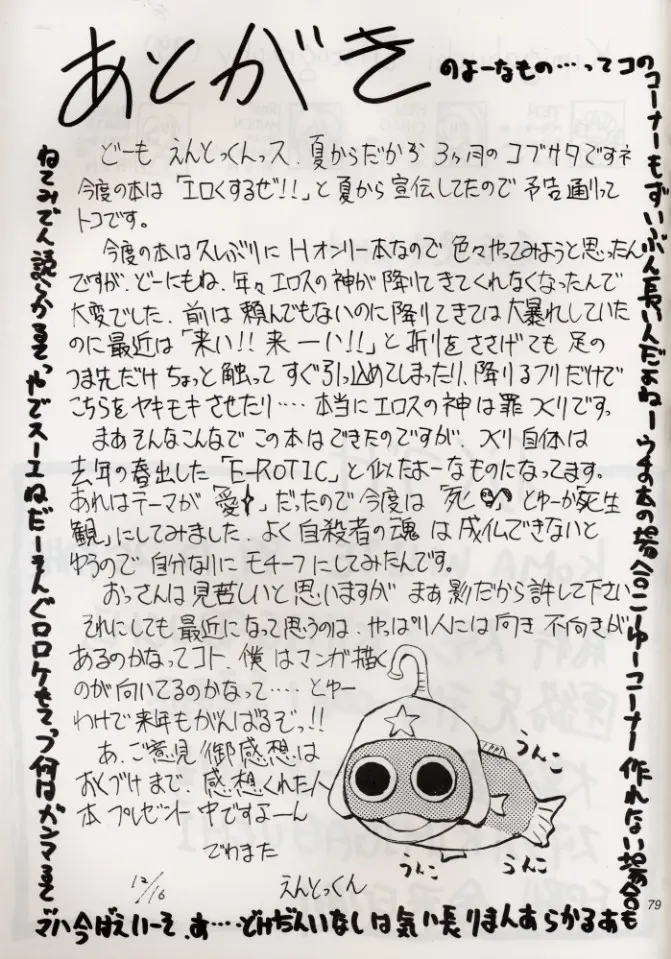 あとがき
のよーなもの…ってコの
コーナーもずいぶん長いんだよねーウチの本の場合こーゆーコーナー作れない場合も
あるからあんまり長い気はしないんだけど…あ、そーいえば今ハマ
どーも えんとっくんっス.夏からだから 3ヶ月のゴブサタですネ
今度の本は「エロくするぜ!!」と夏から宣伝してたので予告通りって
トコです。
今度の本は久しぶりに Hオンリー本なので 色々やってみようと思ったん
ですが、どーにもね、年々エロスの神が降りてきてくれなくなったんで
大変でした.前は頼んでもないのに降りてきては大暴れしていた
のに最近は「来い!!来ーい!!」と祈りをささげても 足の
つま先だけ ちょっと触って すぐ引っ込めてしまったり、降りるフリだけで
こちらをヤキモキさせたり…. 本当にエロスの神は罪つくりです。
まあそんなこんなで この本はできたのですが、つくり自体は
去年の春出した「E-ROTIC」と似たよーなものになってます。
あれはテーマが「愛」だったので今度は「死」とゆーか「死生
観」にしてみました.よく自殺者の魂は成仏できないと
ゆうので 自分なりに モチーフにしてみたんです。
おっさんは見苦しいと思いますが まあ影だから許して下さい
それにしても 最近になって思うのは、やっぱり人には向き不向きが
あるのかなってコト.僕はマンガ描く
のが向いてるのかなって….とゆー
わけで来年もがんばるぞっ!!
あ、ご意見/御感想は
おくづけまで、感想くれた人
本プレゼント中ですよーん
でわまた
12/16
えんとっくん
うんこ
うんこ
うんこ
79